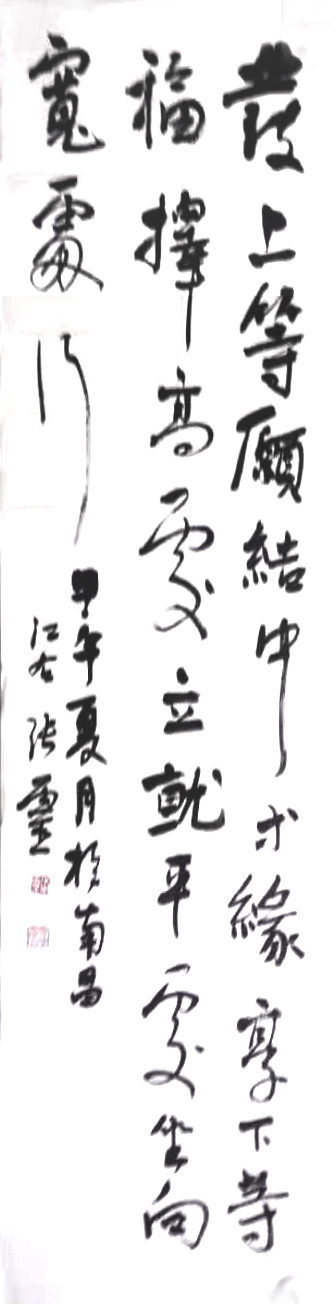 發上等願結中等緣享下等
福擇高處立就平處坐向
寬處行
甲午夏月於南昌
江右張靈